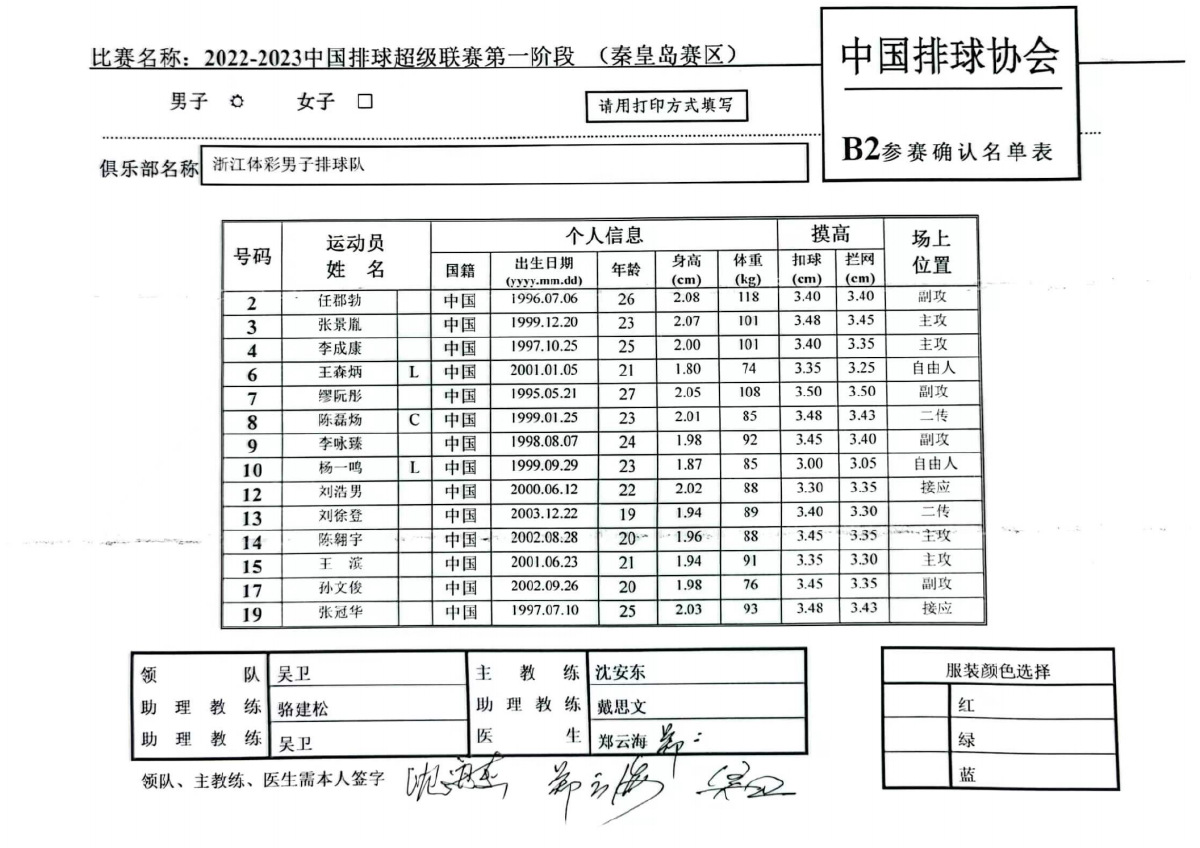 比赛名称：2022-2023中国排球超级联赛第一阶段 （秦皇岛赛区）
中国排球协会
男子 女子 □
请用打印方式填写
B2参赛确认名单表
俱乐部名称 浙江体彩男子排球队
号码 运动员 姓 名 个人信息 摸高 场上 位置
国籍 出生日期 (yyyy.mm.dd) 年龄 身高 (cm) 体重 (kg) 扣球 (cm) 拦网 (cm)
2 任郡勃 中国 1996.07.06 26 2.08 118 3.40 3.40 副攻
3 张景胤 中国 1999.12.20 23 2.07 101 3.48 3.45 主攻
4 李成康 中国 1997.10.25 25 2.00 101 3.40 3.35 主攻
6 王森炳 L 中国 2001.01.05 21 1.80 74 3.35 3.25 自由人
7 缪阮彤 中国 1995.05.21 27 2.05 108 3.50 3.50 副攻
8 陈磊炀 C 中国 1999.01.25 23 2.01 85 3.48 3.43 二传
9 李咏臻 中国 1998.08.07 24 1.98 92 3.45 3.40 副攻
10 杨一鸣 L 中国 1999.09.29 23 1.87 85 3.00 3.05 自由人
12 刘浩男 中国 2000.06.12 22 2.02 88 3.30 3.35 接应
13 刘徐登 中国 2003.12.22 19 1.94 89 3.40 3.30 二传
14 陈翱宇 中国 2002.08.28 20 1.96 88 3.45 3.35 主攻
15 王 滨 中国 2001.06.23 21 1.94 91 3.35 3.30 主攻
17 孙文俊 中国 2002.09.26 20 1.98 76 3.45 3.35 副攻
19 张冠华 中国 1997.07.10 25 2.03 93 3.48 3.43 接应
领 队 吴卫 主 教 练 沈安东
助 理 教 练 骆建松 助 理 教 练 戴思文
助 理 教 练 吴卫 医 生 郑云海 郑
服装颜色选择
红
绿
蓝
领队、主教练、医生需本人签字 郑云海 吴卫